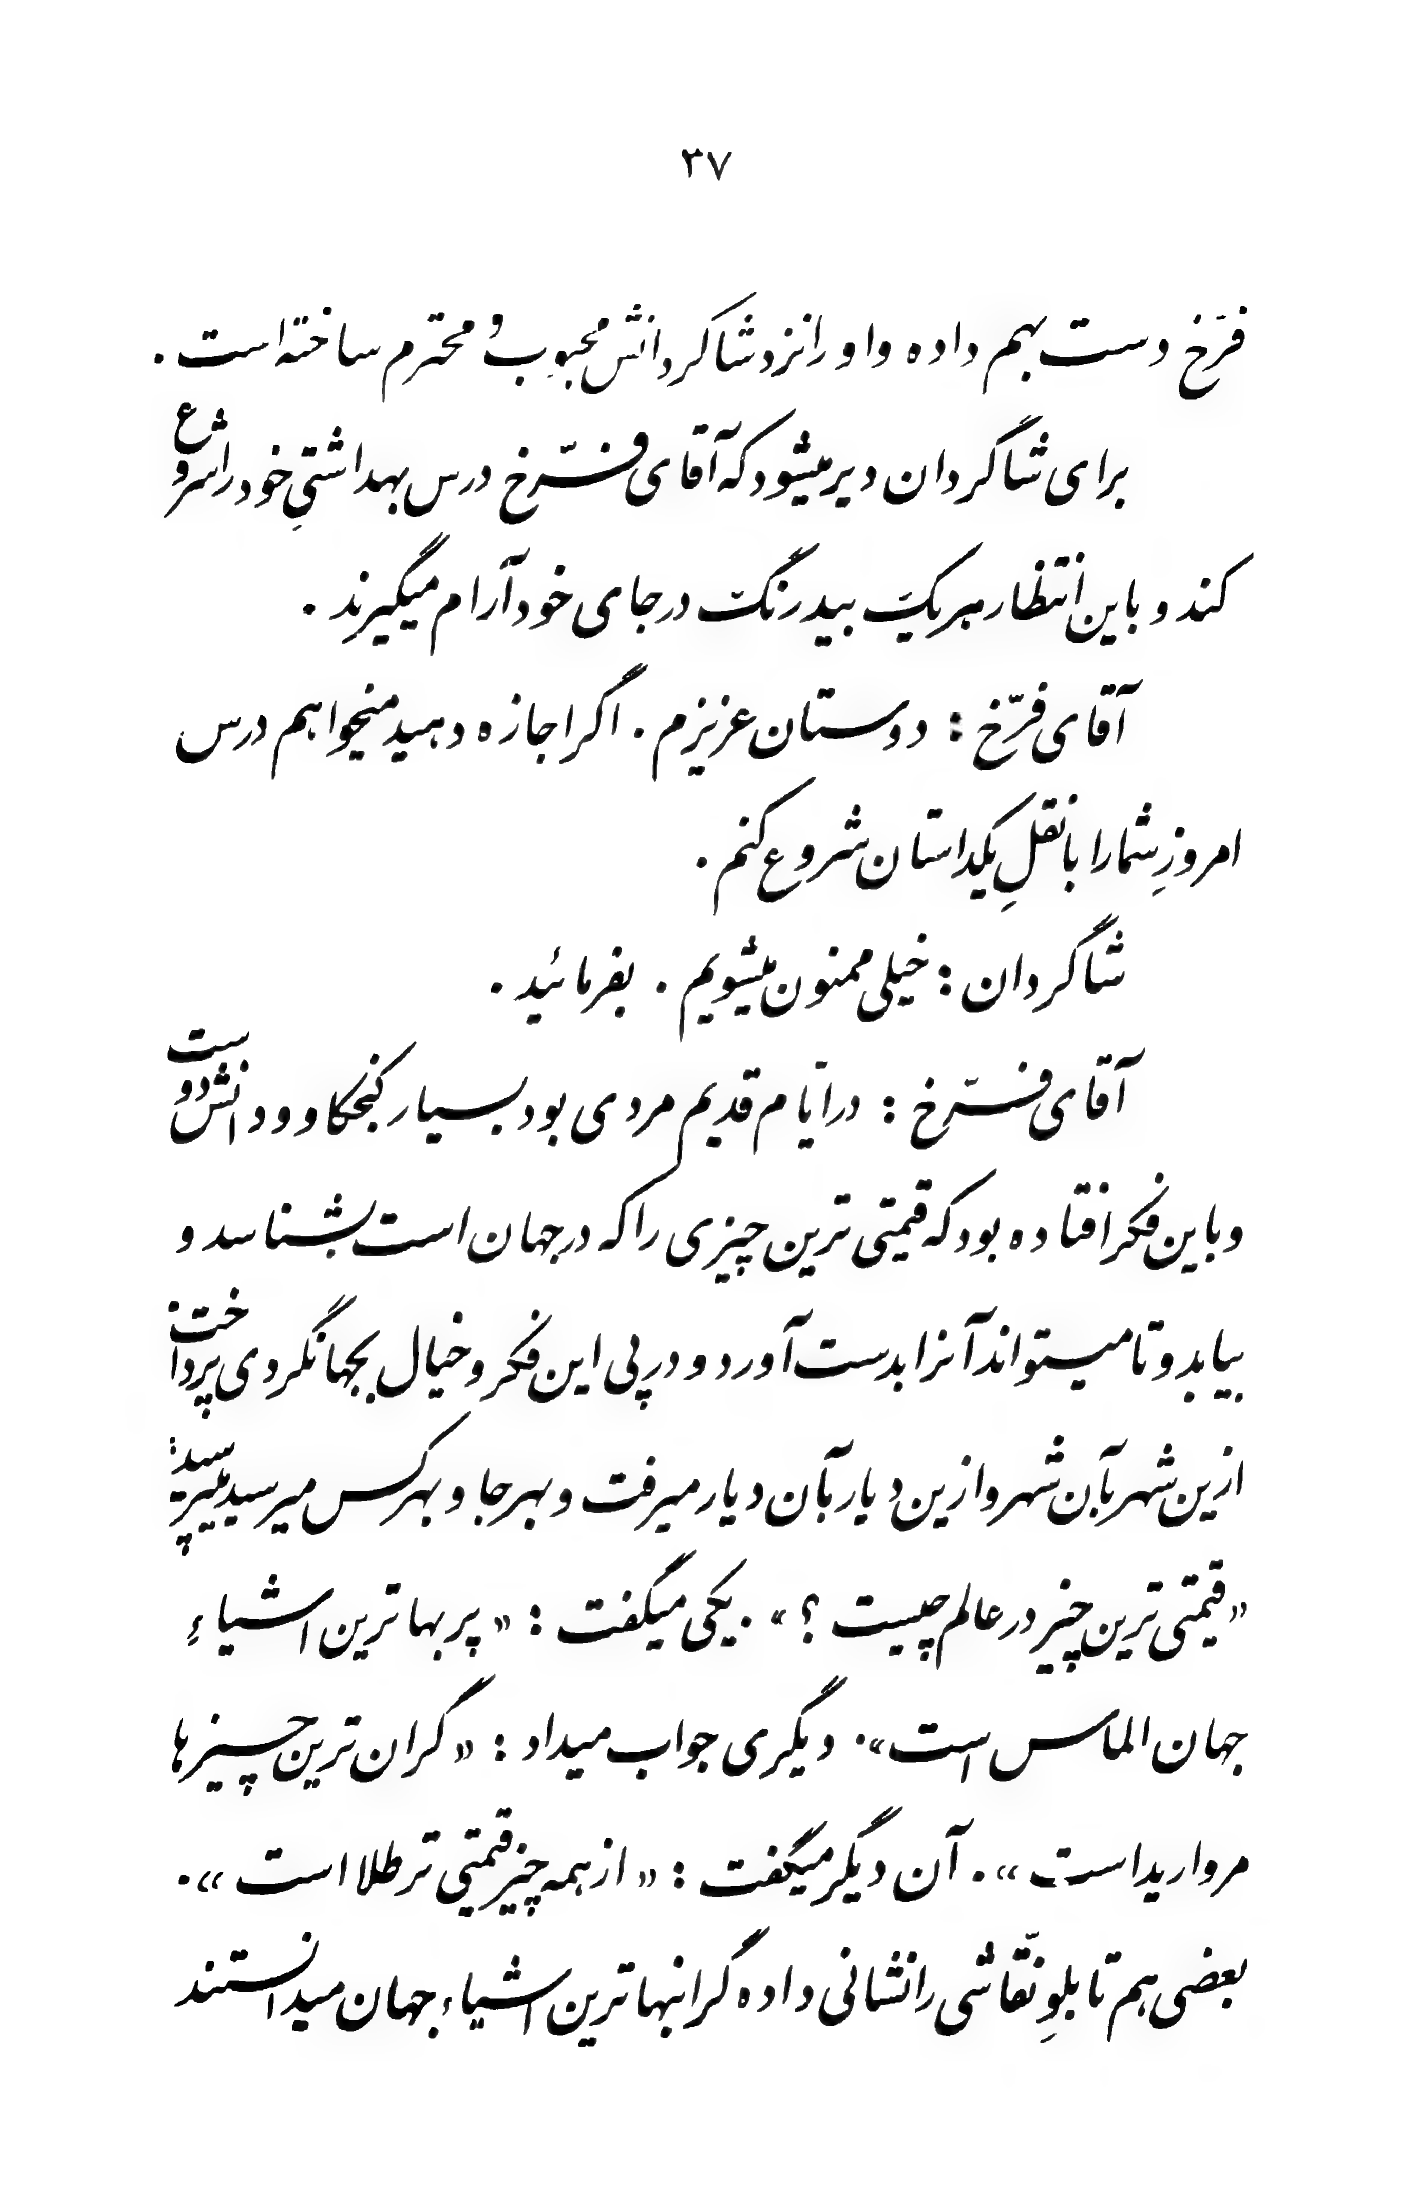 ۳۷
فرّخ دست بهم داده و او را نزد شاگردانش محبوب و محترم ساخته است .
برای شاگردان دیر میشود که آقای فرّخ درس بهداشتیِ خود را شروع
کند و باین انتظار هر یک بیدرنگ در جای خود آرام میگیرند .
آقای فرّخ : دوستان عزیزم . اگر اجازه دهید میخواهم درس
امروزِ شما را با نقلِ یکداستان شروع کنم .
شاگردان : خیلی ممنون میشویم . بفرمائید .
آقای فرّخ : در ایّام قدیم مردی بود بسیار کنجکاو و دانش دوست
و باین فکر افتاده بود که قیمتی ترین چیزی را که در جهان است بشناسد و
بیابد و تا میتواند آنرا بدست آورد و در پی این فکر و خیال بجهانگردی پرداخت
ازین شهر بآن شهر و ازین دیار بآن دیار میرفت و بهر جا و بهر کس میرسید میپرسید :
« قیمتی ترین چیز در عالم چیست ؟ » . یکی میگفت : « پر بهاترین اشیاءِ
جهان الماس است » . دیگری جواب میداد : « گران ترین چیزها
مروارید است » . آن دیگر میگفت : « از همه چیز قیمتی تر طلا است » .
بعضی هم تابلوِ نقّاشی را نشانی داده گرانبهاترین اشیاء جهان میدانستند